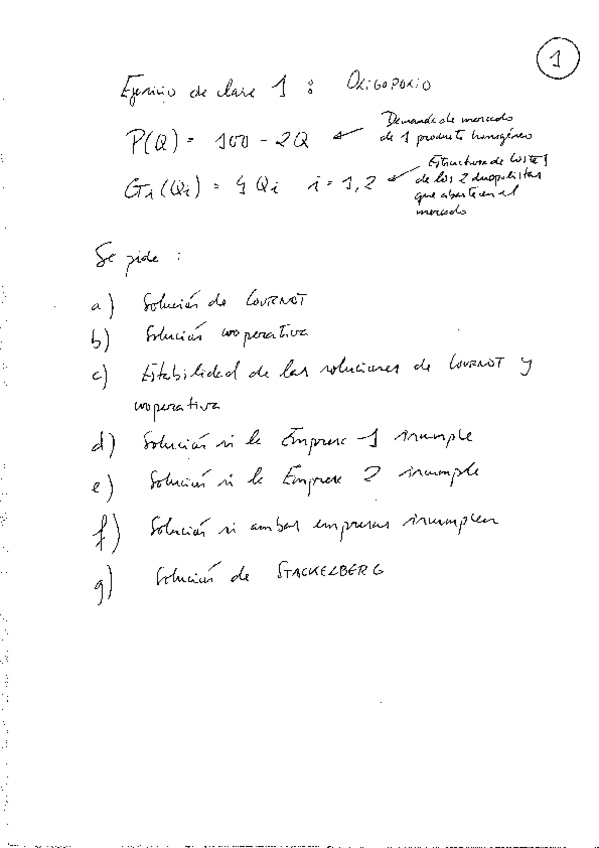 1
Ejercicio de clase 1 : OLIGOPOLIO
P(Q) = 100 - 2Q ← Demanda de mercado de 1 producto homogéneo
CTi(Qi) = 4 Qi i = 1,2 ← Estructura de costes de los 2 duopolistas que abastecen el mercado
Se pide :
a) Solución de COURNOT
b) Solución cooperativa
c) Estabilidad de las soluciones de COURNOT y
cooperativa
d) Solución si la Empresa 1 incumple
e) Solución si la Empresa 2 incumple
f) Solución si ambas empresas incumplen
g) Solución de STACKELBERG